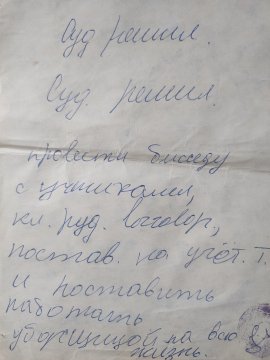 Суд решил.
Суд. решил.
провести биседу
с учиниками,
кл. руд. вогавор,
постав. на учёт. Т.
и поставить
работать
уборжицой на всю
жизнь.